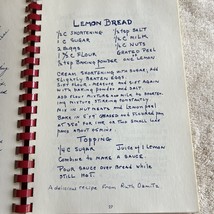 LEMON BREAD
1/2 C SHORTENING 1/2 tsp SALT
1 C SUGAR 1/2 C MILK
2 EGGS 1/2 C NUTS
1 1/2 C FLOUR GRATED PEEL
1 tsp BAKING POWDER ONE LEMON
CREAM SHORTENING WITH SUGAR, ADD
SLIGHTLY BEATEN EGGS.
SIFT FLOUR, MEASURE AND SIFT AGAIN
WITH BAKING POWDER AND SALT
ADD FLOUR MIXTURE AND MILK TO SHORTEN-
ING MIXTURE STIRRING CONSTANTLY
MIX IN NUTMEATS AND LEMON PEEL
BAKE IN 5"x9" GREASED AND FLOURED PAN
AT 350° FOR ONE OR TWO SMALL LOAF
PANS ABOUT 60 MINS
TOPPING
1/4 C SUGAR JUICE of 1 LEMON
COMBINE TO MAKE A SAUCE.
POUR SAUCE OVER BREAD WHILE
STILL HOT.
A delicious recipe from Ruth